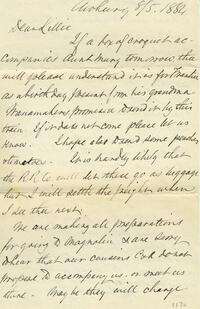 8/5. 1884
Dear Lillie
If a box of croquet ac-
companies Aunt Mary tomorrow
will please understand it is for
as a birthday present from his grandma
Wanamakers promised to send it by this
train If it does not come please let us
know. I hope also to send some peaches
It is hardly likely that
the R.R.Co. will let these go as baggage
but I will settle the freight when
I see them next.
We are making all preparations
for going to Magnolia Lane Sorry
to hear that our cousins do not
propose to accompany us or meet us
there - Maybe they will change